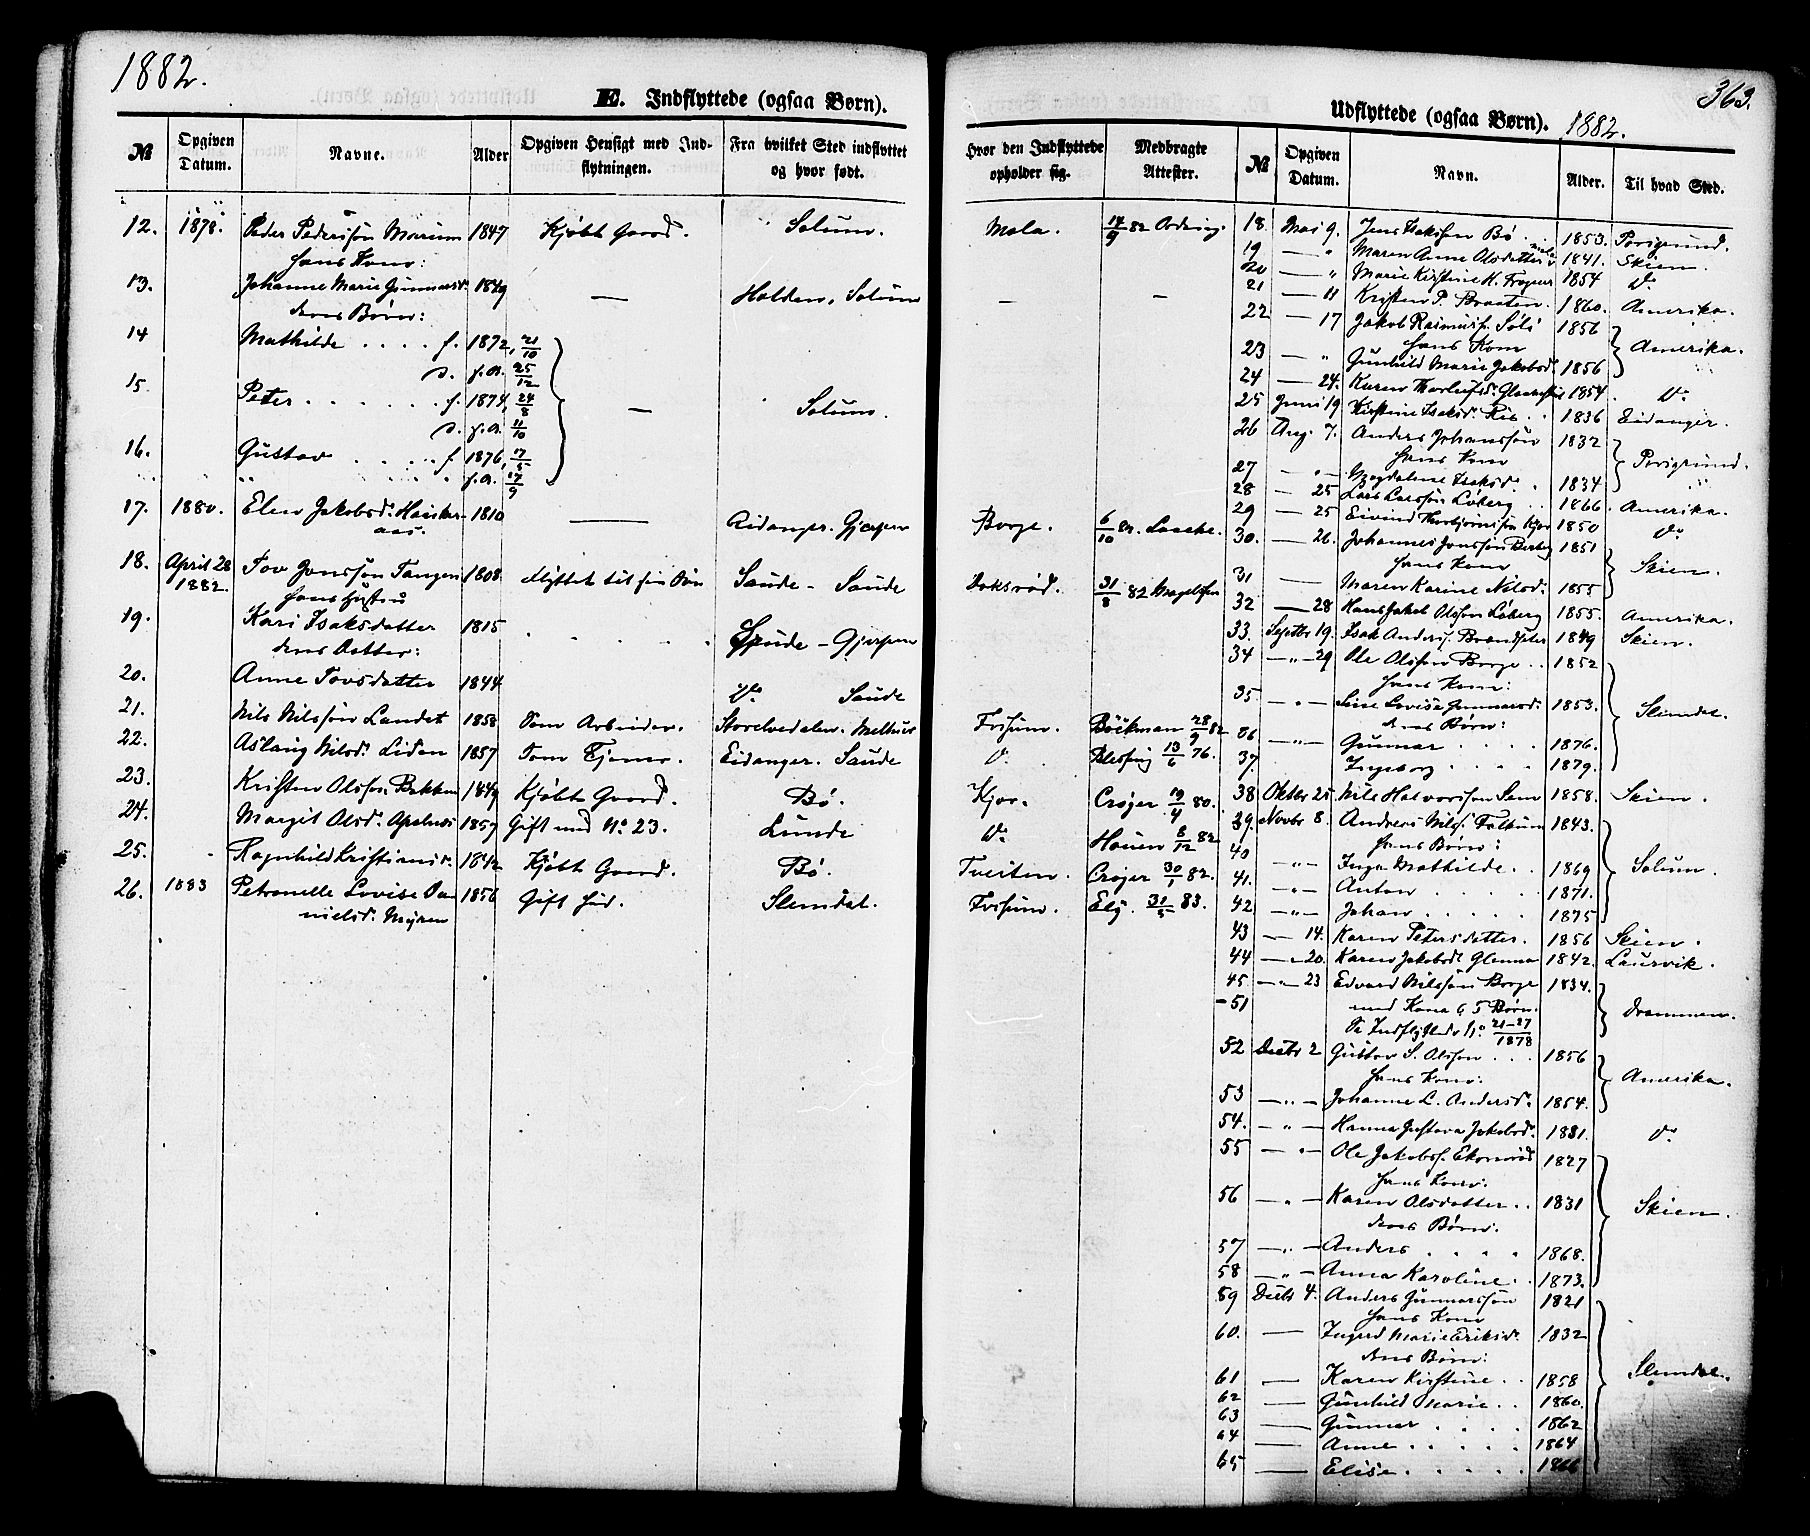 1882.
E. Indflyttede (ogsaa Børn).
№ | Opgiven Datum. | Navne. | Alder | Opgiven Hensigt med Indflytningen. | Fra hvilket Sted indflyttet og hvor født.
12. 1878. Peder Pederssøn 1847 Kjøbt Gaard. Solum.
hans Kone:
13. Johanne Marie Gunnarsd. 1849 — Holden, Solum
deres Børn:
14 Mathilde . . . . f. 1872, 21/10
d. f.A. 25/12
15. Peter . . . . . . f. 1874, 24/8 — Solum.
d. f.A. 11/10
16. Gustav . . . . . f. 1876, 17/5
f.A. 17/9
17. 1880. Elen Jakobsd. 1810 — Eidanger. Gjerpen
18. April 28 1882. Tov Jonssøn Tangen 1808 flyttet til sin Søn Saude – Saude
hans Hustru
19. Kari Isaksdatter 1815 Saude – Gjerpen
deres Datter:
20. Anne Tovsdatter 1844 Do Saude
21. Nils Nilssøn Landet 1858 Som Arbeider. Storelvedalen. Melhus
22. Aslaug Nilsd. Liden 1857 Som Tjener. Eidanger. Saude
23. Kristen Olssøn Bakken 1849 Kjøbt Gaard. Bø.
24. Margit Olsd. 1857 Gift med No 23. Lunde
25. Ragnhild Kristiansd. 1842 Kjøbt Gaard. Bø.
26. 1883 Petronelle Lovise Danielsd. Myren 1856 Gift hid. Slemdal.
363.
Udflyttede (ogsaa Børn). 1882.
Hvor den Indflyttede opholder sig. | Medbragte Attester. | № | Opgiven Datum. | Navn. | Alder. | Til hvad Sted.
Mæla. 14/9 82
— —
Borge. 6/10 82. Laache.
Doksrød. 31/8 82 Magelssen
Frogum. Böckman 28/9 82
Do Blessing 13/6 76.
Kjær. Crøger 19/4 80.
Do Houen 8/12 82
Tveiten. Crøger 30/1 82.
Elg. 31/5 83.
18. Mai 9. Jens Isaksen Bø . 1853. Porsgrund.
19 — " Maren Anne Olsdatter 1841. Skien.
20 — " Marie Kirstine H. Frogner 1854 Do
21 — 11 Kristen P. Braaten. 1860. Amerika.
22 — 17 Jakob Rasmuss. Søli 1856
hans Kone Amerika.
23 — " Gunhild Marie Jakobsd. 1856
24 — 24. Karen Thorleifsd. 1854. Do
25 Juni 19 Kirstine Isaksd. Ris . . 1836 Eidanger.
26 Aug. 7. Anders Johanssøn 1832
hans Kone Porsgrund.
27 — " — Magdalene Isaksd. . 1834
28 — 25 Lars Larssøn Løberg . 1866. Amerika.
29 — 25 Eivind Thorbjørnssøn Kjær 1850 Do
30. — 26. Johannes Jonssøn Berberg 1851
hans Kone Skien.
31 — Maren Karine Nilsd. 1855
32 — 28 Hans Jakob Olssøn Løberg 1855. Amerika.
33. Septbr 19. Isak Anders. Brændsæter 1849 Skien.
34 — " — 29 Ole Olssøn Borge . . 1852
hans Kone:
35 — " — Line Lovise Gunnarsd. 1853. Slemdal.
deres Børn:
36 — " — Gunnar . . . . 1876.
37. Ingeborg . . . . 1879.
38 Oktbr 25 Nils Halvorssøn Sem 1858. Skien.
39. Novbr 8. Andreas Nils. Falkum 1843.
hans Børn:
40 — " — Inga Mathilde . . 1869 Solum.
41. — " — Anton . . . . . 1871.
42 — " — Johan . . . . . 1875
43 — 14. Karen Petersdatter. 1856 Skien.
44 — " 20. Karen Jakobsd. Glenna 1842. Laurvik.
45. — " 23 Edvard Nilssøn Borge 1834.
–51 med Kone & 5 Børn. Drammen.
Se Indflyttede No 21–27/1878
52 Decbr 2 Gustav S. Olssøn . . . 1856
hans Kone: Amerika.
53 — " — Johanne L. Andersd. 1854.
54. — " — Hanna Gustava Jakobsd. 1881. Do
55 — " — Ole Jakobss. 1827
hans Kone:
56 — " — Karen Olsdatter . . 1831 Skien.
deres Børn:
57 — " — Anders . . . . 1868.
58 — " — Anna Karoline . . 1873.
59 Decbr 4. Anders Gunnarssøn 1821
hans Kone
60. — Inger Marie Eriksd. 1832
deres Børn:
61 — Karen Kirstine . . 1858 Slemdal.
62 — Gunhild Marie . . 1860.
63 — Gunnar . . . . 1862
64 — Anne . . . . . 1864
65 — Elise . . . . . 1866